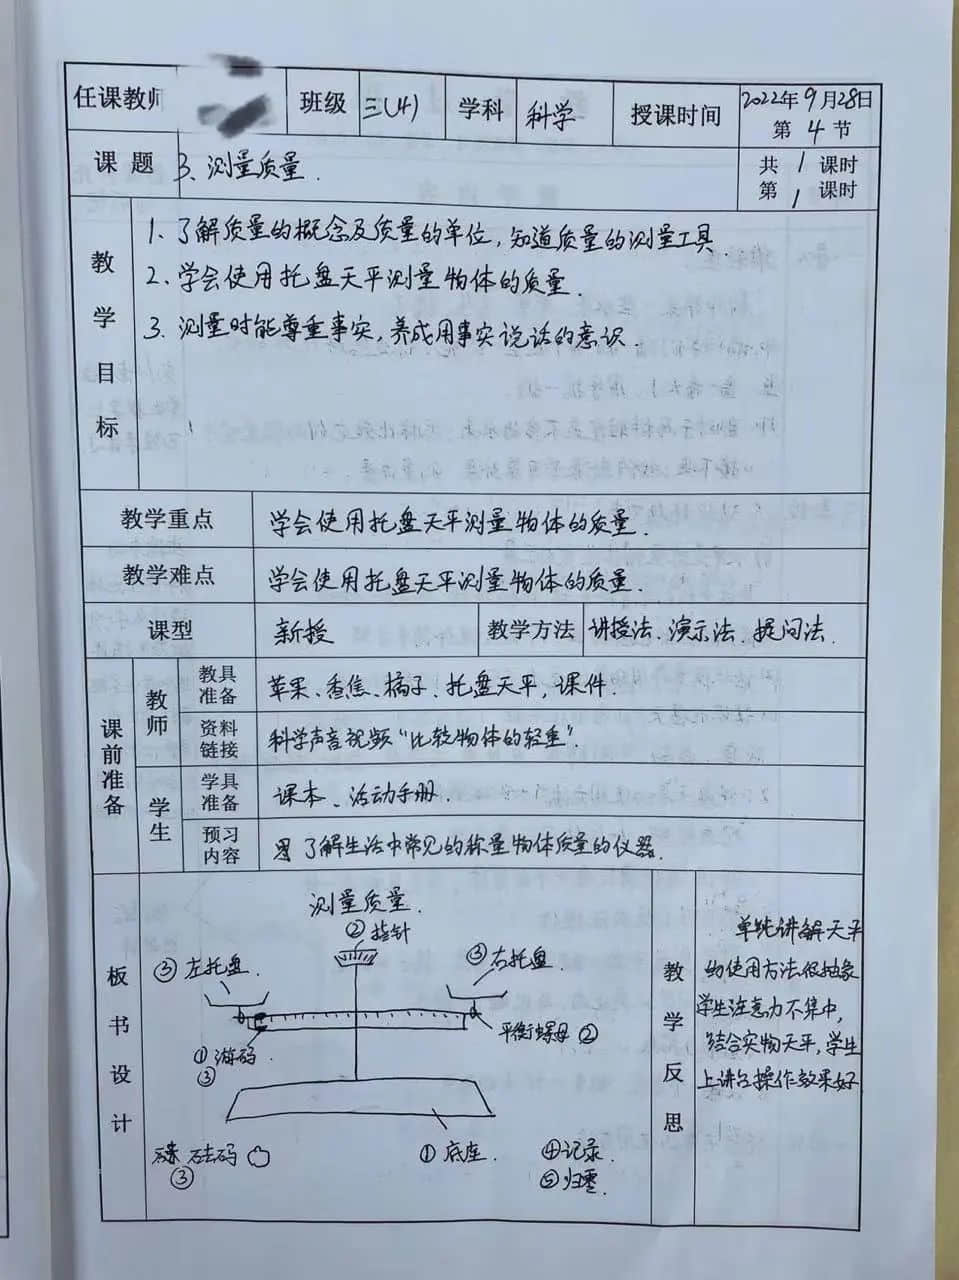 任课教师 班级 三(4) 学科 科学 授课时间 2022年9月28日
第 4 节
课题 3、测量质量. 共 1 课时
第 1 课时
教学目标
1、了解质量的概念及质量的单位,知道质量的测量工具.
2、学会使用托盘天平测量物体的质量.
3、测量时能尊重事实,养成用事实说话的意识.
教学重点 学会使用托盘天平测量物体的质量.
教学难点 学会使用托盘天平测量物体的质量.
课型 新授 教学方法 讲授法、演示法、提问法.
课前准备
教师 教具准备 苹果、香焦、橘子、托盘天平,课件.
资料链接 科学声音视频“比较物体的轻重”
学生 学具准备 课本、活动手册.
预习内容 了解生活中常见的称量物体质量的仪器.
板书设计
测量质量.
②指针
③左托盘. ③右托盘.
①游码.
③
平衡螺母②
砝码
③
①底座. ④记录.
⑤归零.
教学反思
单纯讲解天平
的使用方法很抽象
学生注意力不集中,
结合实物天平,学生
上讲台操作效果好